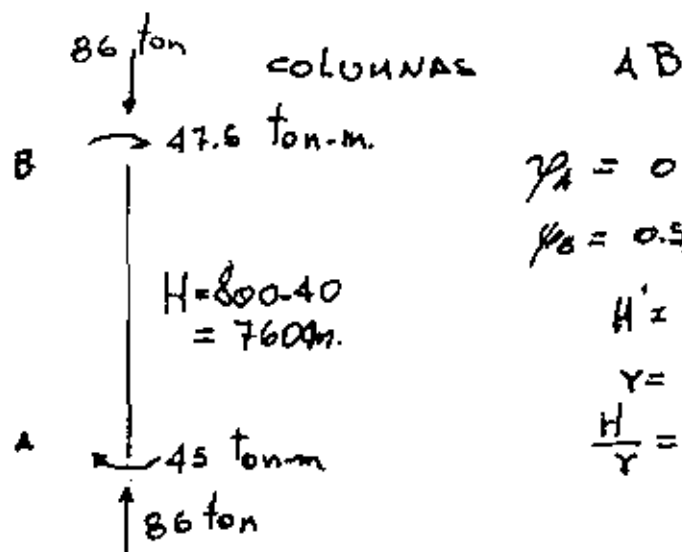 86 ton
COLUMNAS A B
B 47.6 ton-m.
ψA = 0
ψB = 0.5
H=800-40
= 760cm.
H'=
r=
A 45 ton-m
H'/r =
86 ton